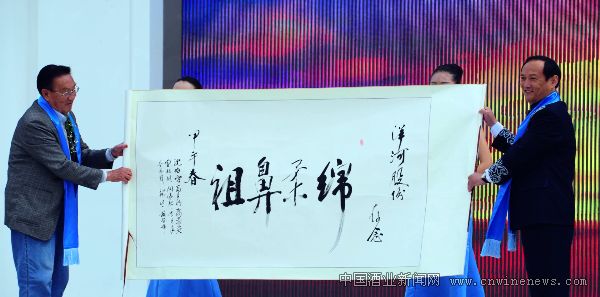 洋河股份
存念
绵柔鼻祖
甲午春
中国酒业新闻网
www.cnwinenews.com